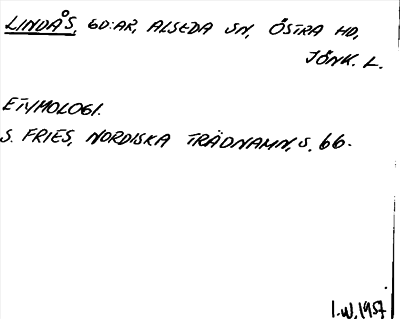 LINDÅS, GD:AR, ALSEDA SN, ÖSTRA HD,
JÖNK. L.
ETYMOLOGI.
S. FRIES, NORDISKA TRÄDNAMN, S. 66.
I.W. 1957